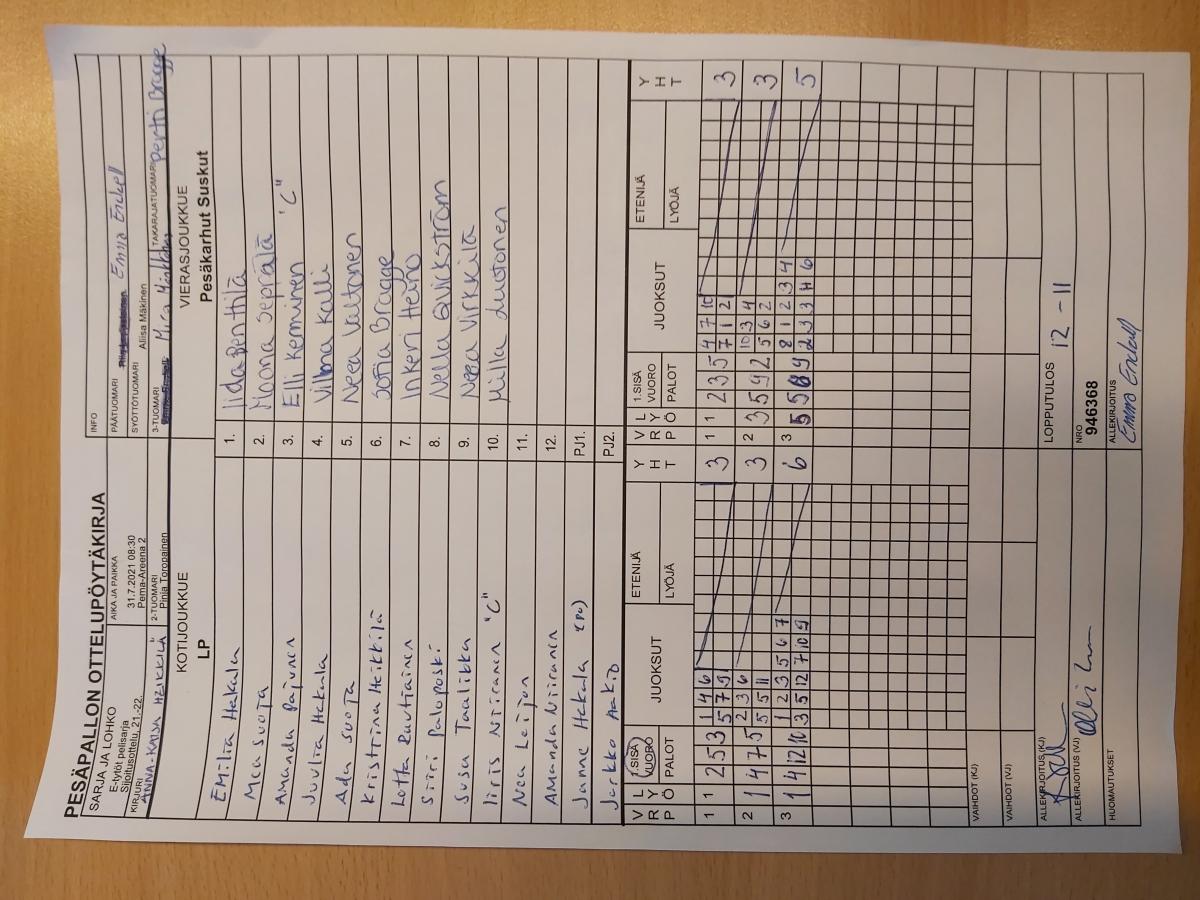 PESÄPALLON OTTELUPÖYTÄKIRJA
SARJA JA LOHKO
E-tytöt pelisarja
Sijoitusottelu, 21.-22.
AIKA JA PAIKKA
31.7.2021 08:30
Pema-Areena 2
INFO
PÄÄTUOMARI
Emma Enckell
SYÖTTÖTUOMARI
Aliisa Mäkinen
KIRJURI
ANNA-KAISA HEIKKILÄ
2-TUOMARI
Pinja Toropainen
3-TUOMARI
TAKARAJATUOMARI
Pertti Bragge
KOTIJOUKKUE
LP
VIERASJOUKKUE
Pesäkarhut Suskut
Emilia Hakala 1. Iida Penttilä
Mea Suoja 2. Moona Seprälä
Amanda Pajunen 3. Elli Keminen "C"
Juulia Hakala 4. Vilma Kalli
Ada Suoja 5. Neea Valtonen
Kristiina Heikkilä 6. Sofia Bragge
Lotta Rautiainen 7. Inkeri Heino
Siiri Paloposki 8. Nella Qvickström
Susa Taalikka 9. Neea Virkkilä
Iiris Niiranen "C" 10. Milla Luotonen
Nea Leijon 11.
Amanda Niiranen 12.
Janne Hakala (PJ) PJ1.
Jarkko Aakio PJ2.
VRP LYÖ 1.SISÄVUORO PALOT JUOKSUT ETENIJÄ LYÖJÄ YHT
VRP LYÖ 1.SISÄVUORO PALOT JUOKSUT ETENIJÄ LYÖJÄ YHT
1 1 2 5 3 1 4 6 3
5 7 9
2 1 4 7 5 2 3 6 3
5 5 11
3 1 4 12 10 1 2 3 5 6 7 6
3 5 12 7 10 9
1 1 2 3 5 4 7 10 3
7 1 2
2 3 5 9 2 10 3 4 3
5 6 2
3 5 5 8 9 8 1 2 3 4 5
2 3 3 4 6
VAIHDOT (KJ)
VAIHDOT (VJ)
ALLEKIRJOITUS (KJ)
LOPPUTULOS 12 - 11
ALLEKIRJOITUS (VJ)
NRO
946368
HUOMAUTUKSET
ALLEKIRJOITUS
Emma Enckell